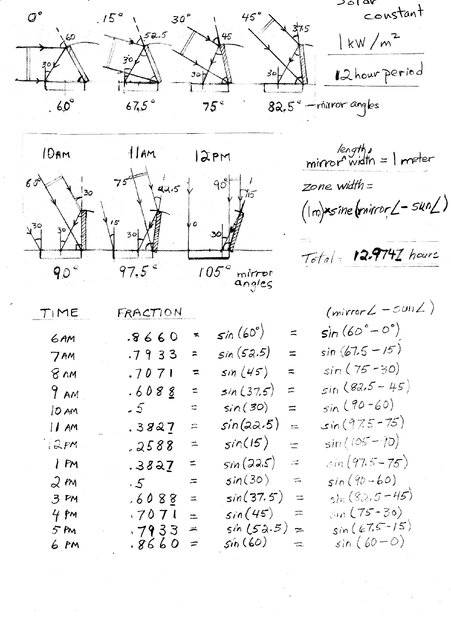 Solar
constant
1 kW/m²
12 hour period
0° 15° 30° 45°
60 52.5 45 37.5
30 30 30 30
60° 67.5° 75° 82.5° — mirror angles
10AM 11AM 12PM
length,
mirror ^ width = 1 meter
zone width =
(1m)*sine(mirror∠-sun∠)
60° 75° 90°
30 22.5 15
30 30 15 30 0
90° 97.5° 105° mirror
angles
Total = 12.9741 hours
TIME FRACTION (mirror∠ - sun∠)
6AM .8660 = sin(60°) = sin(60°-0°)
7AM .7933 = sin(52.5) = sin(67.5-15)
8AM .7071 = sin(45) = sin(75-30)
9AM .6088 = sin(37.5) = sin(82.5-45)
10AM .5 = sin(30) = sin(90-60)
11AM .3827 = sin(22.5) = sin(97.5-75)
12PM .2588 = sin(15) = sin(105-90)
1PM .3827 = sin(22.5) = sin(97.5-75)
2PM .5 = sin(30) = sin(90-60)
3PM .6088 = sin(37.5) = sin(82.5-45)
4PM .7071 = sin(45) = sin(75-30)
5PM .7933 = sin(52.5) = sin(67.5-15)
6PM .8660 = sin(60) = sin(60-0)